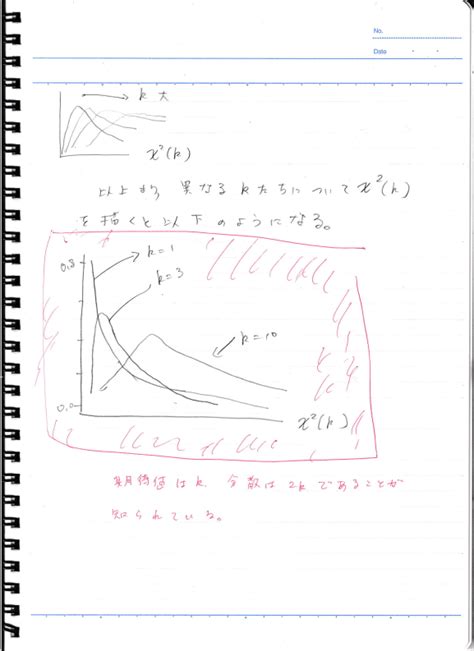 No.
Date
k 大
x²(k)
以上から 異なる kたちについて x²(k)
を描くと以下のようになる。
k=1
0.8
k=3
k=10
0.0
x²(k)
期待値は k, 分散は 2k であることが
知られている。